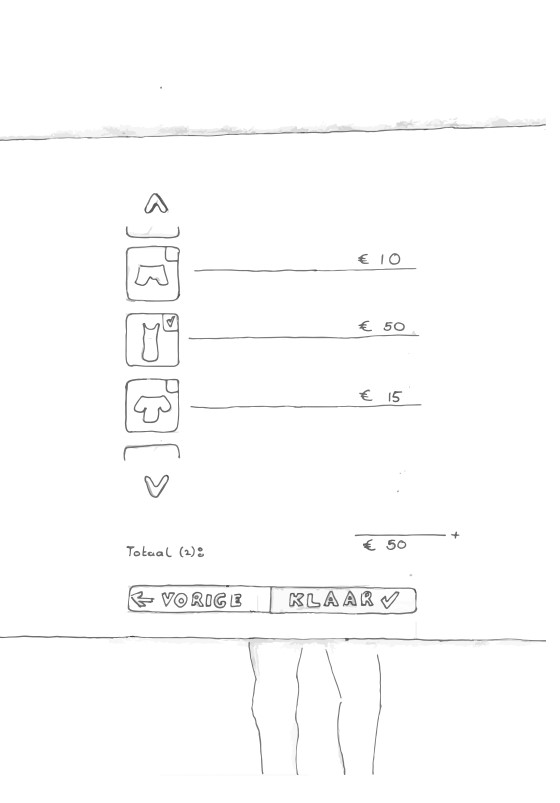 € 10
€ 50
€ 15
+
Totaal (2):
€ 50
← VORIGE
KLAAR ✓